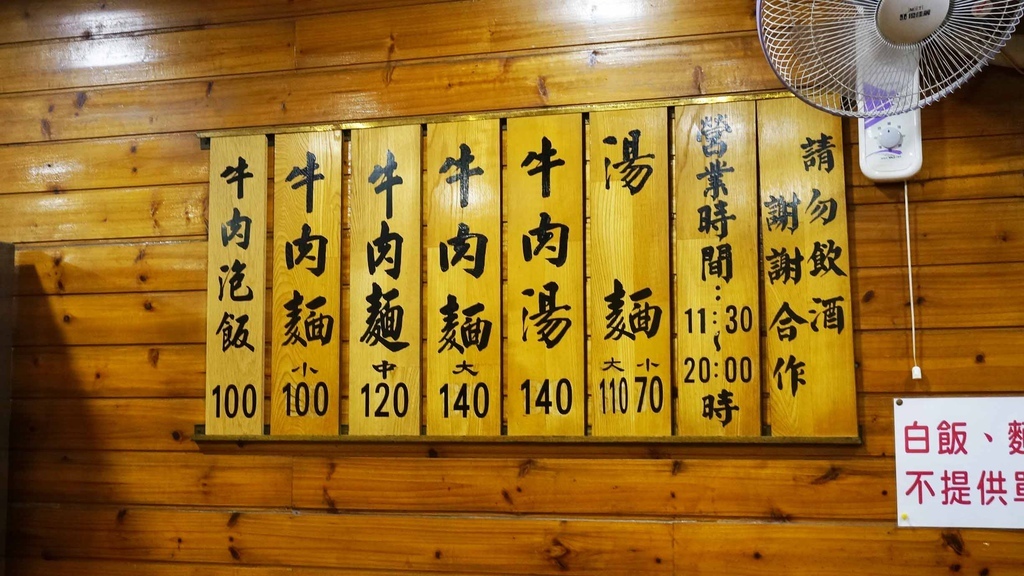 請勿飲酒
謝謝合作
營業時間：
11：30
～
20：00
時
湯麵
大 小
110 70
牛肉湯
140
牛肉麵
大
140
牛肉麵
中
120
牛肉麵
小
100
牛肉泡飯
100
白飯、麵
不提供單